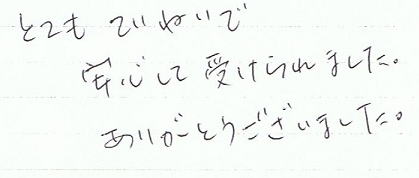 とても ていねいで
安心して受けられました。
ありがとうございました。